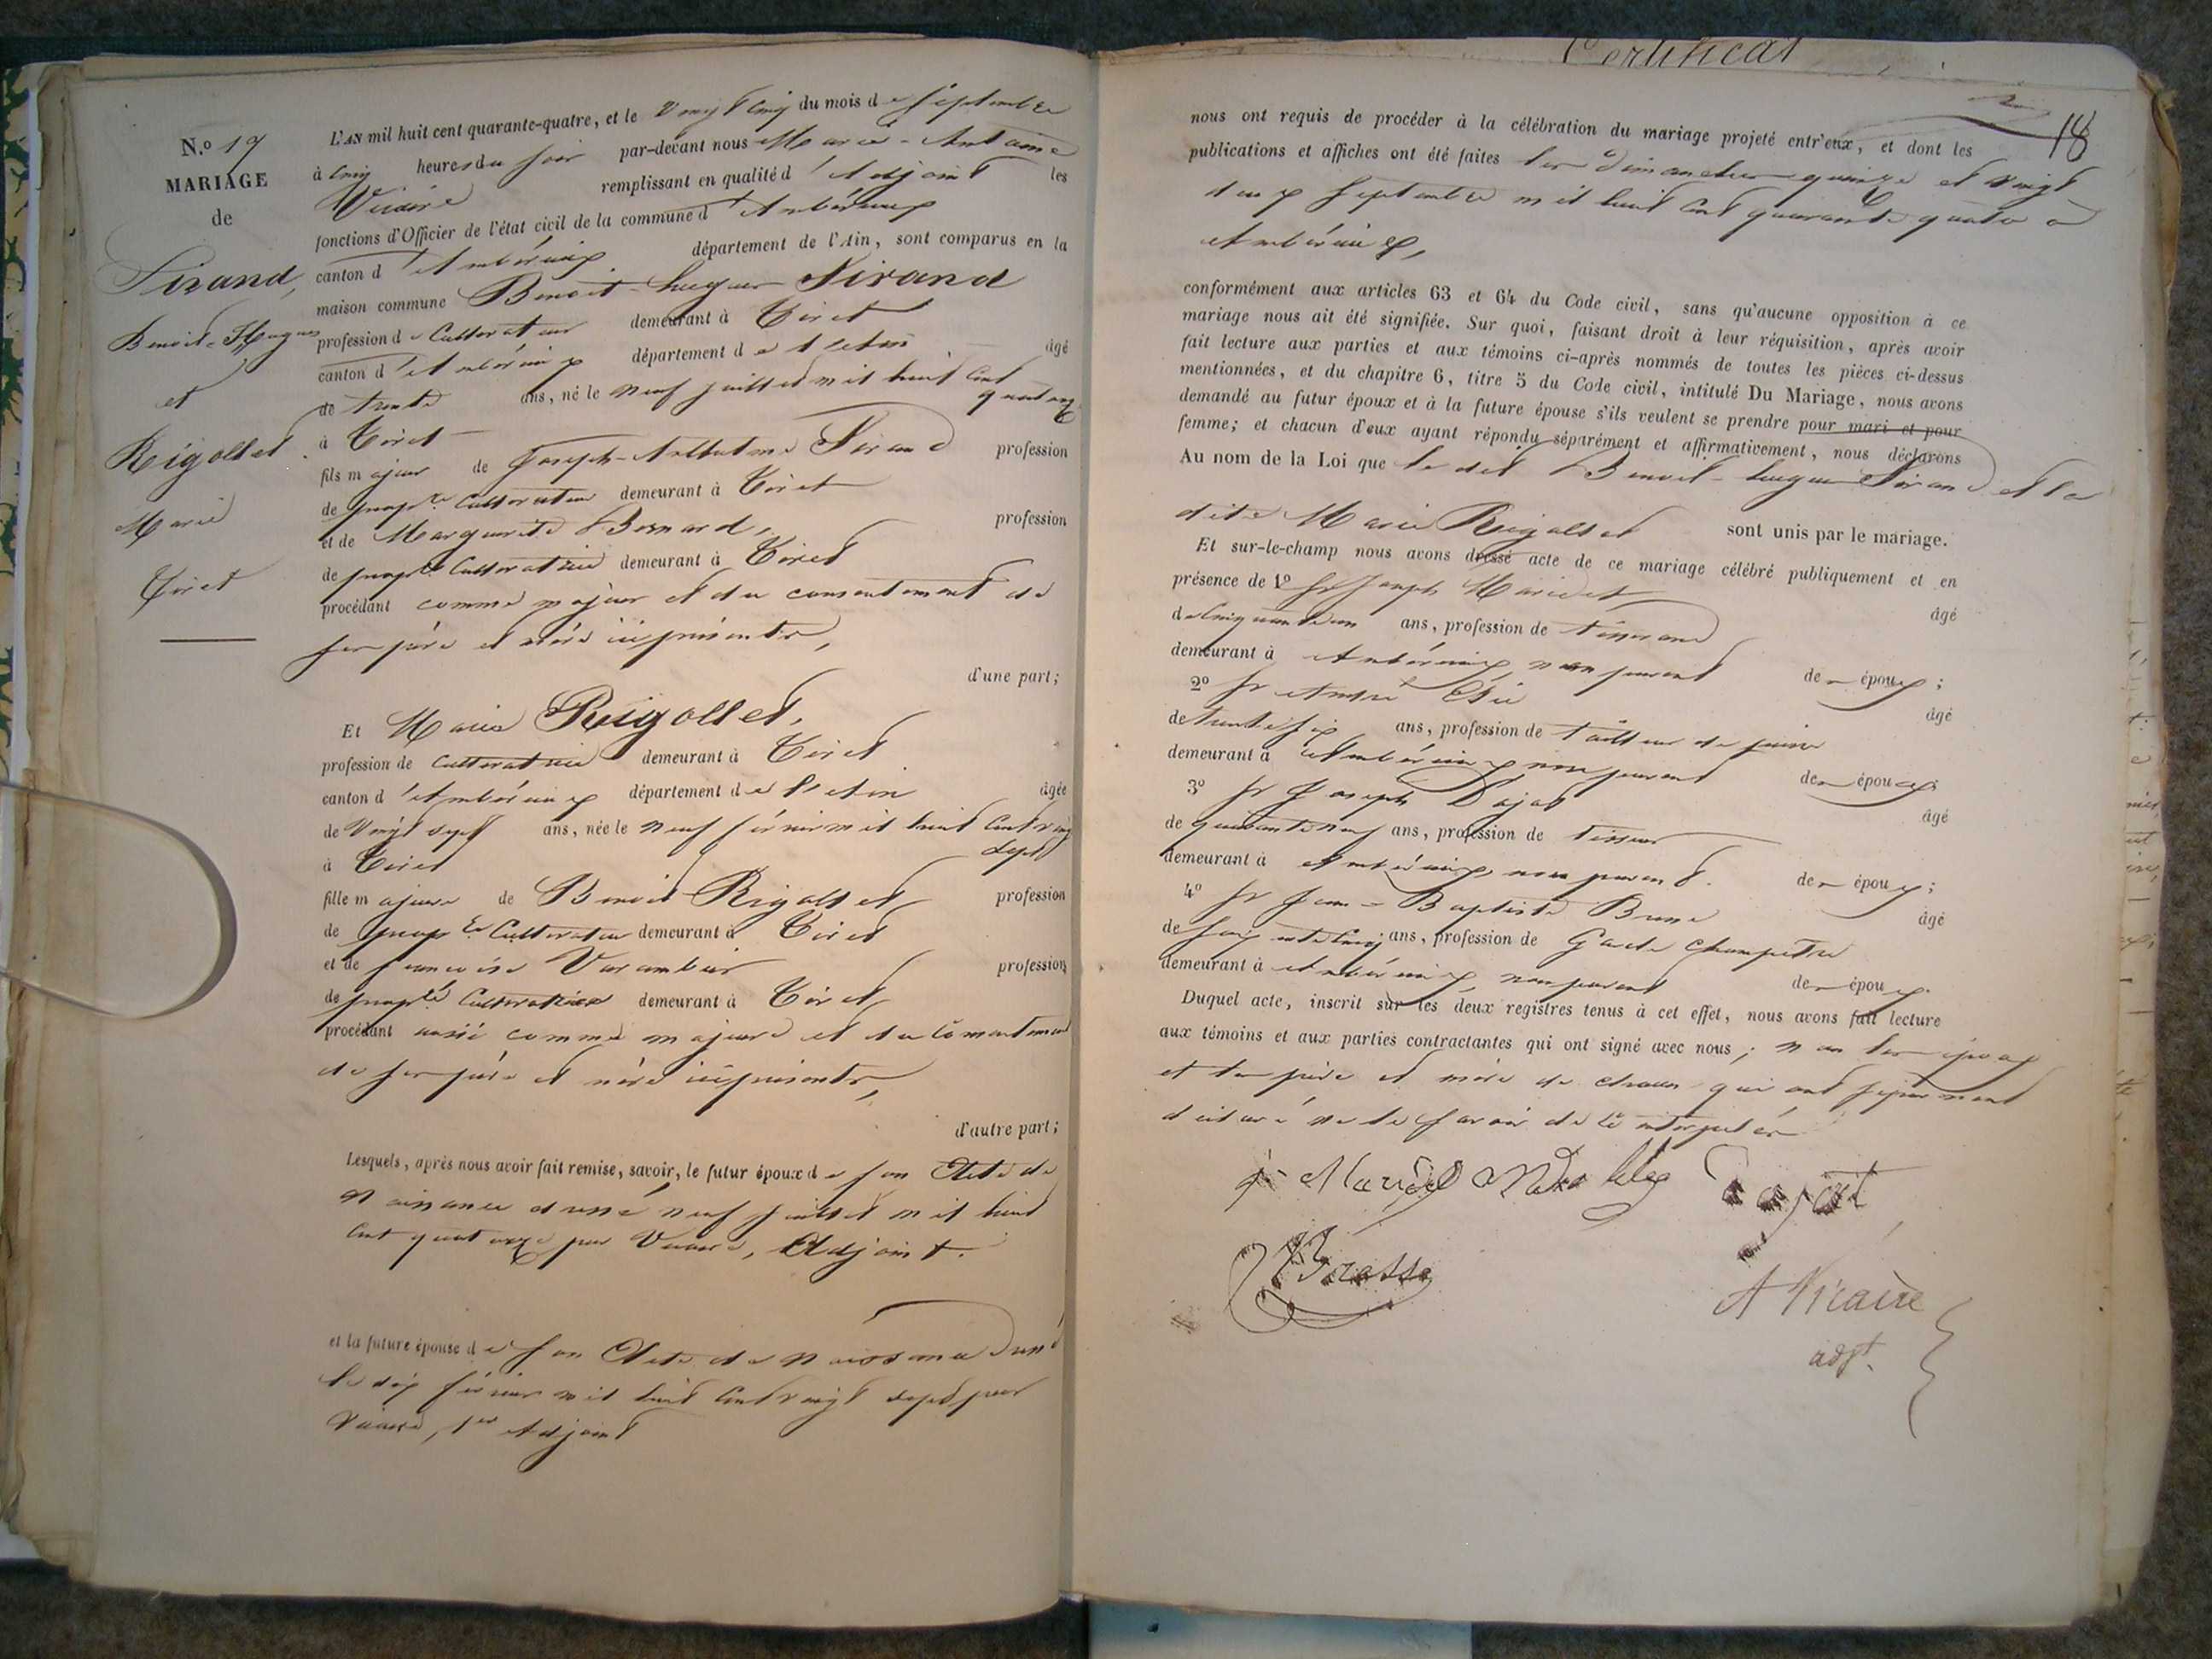 N.º 17
MARIAGE
de
Sirand,
Benoit-Hugues
et
Rigollet
Marie
Tiret
L'AN mil huit cent quarante-quatre, et le Vingt Cinq du mois de Septembre
à Cinq heures du Soir par-devant nous Marie-Antoine
Vicaire remplissant en qualité d'Adjoint les
fonctions d'Officier de l'état civil de la commune d'Ambérieux
canton d'Ambérieux département de l'Ain, sont comparus en la
maison commune Benoit-hugues Sirand
profession de Cultivateur demeurant à Tiret
canton d'Ambérieux département de l'Ain âgé
de trente ans, né le neuf juillet mil huit Cent
quatorze
à Tiret
fils majeur de Joseph-Anthelme Sirand profession
de prop.re Cultivateur demeurant à Tiret
et de Marguerite Bernard, profession
de prop.re Cultivatrice demeurant à Tiret
procédant comme majeur et du consentement de
ses père et mère ici présents,
d'une part;
Et Marie Rigollet,
profession de Cultivatrice demeurant à Tiret
canton d'Ambérieux département de l'Ain âgée
de Vingt sept ans, née le neuf février mil huit Cent dix
sept
à Tiret
fille majeure de Benoit Rigollet profession
de prop.re Cultivateur demeurant à Tiret
et de françoise Varambier profession
de prop.re Cultivatrice demeurant à Tiret
procédant aussi comme majeure et du Consentement
de ses père et mère ici présents,
d'autre part;
Lesquels, après nous avoir fait remise, savoir, le futur époux de son Acte de
Naissance dressé neuf juillet mil huit
Cent quatorze par Vicaire, Adjoint.
et la future épouse de son Acte de Naissance dressé
le dix février mil huit Cent dix sept par
Vicaire, 1er Adjoint
Certificat
18
nous ont requis de procéder à la célébration du mariage projeté entr'eux, et dont les
publications et affiches ont été faites les Dimanches quinze et Vingt
deux Septembre mil huit Cent quarante quatre à
Ambérieux,
conformément aux articles 63 et 64 du Code civil, sans qu'aucune opposition à ce
mariage nous ait été signifiée. Sur quoi, faisant droit à leur réquisition, après avoir
fait lecture aux parties et aux témoins ci-après nommés de toutes les pièces ci-dessus
mentionnées, et du chapitre 6, titre 5 du Code civil, intitulé Du Mariage, nous avons
demandé au futur époux et à la future épouse s'ils veulent se prendre pour mari et pour
femme; et chacun d'eux ayant répondu séparément et affirmativement, nous déclarons
Au nom de la Loi que le dit Benoit-hugues Sirand et la
dite Marie Rigollet sont unis par le mariage.
Et sur-le-champ nous avons dressé acte de ce mariage célébré publiquement et en
présence de 1º Sr Joseph Maridet, âgé
de Cinquante un ans, profession de tisserand
demeurant à Ambérieux, non parent des époux;
2º Sr André âgé
de trente six ans, profession de tailleur de pierre
demeurant à Ambérieux, non parent des époux;
3º Sr Joseph Dajat âgé
de quarante neuf ans, profession de tisseur
demeurant à Ambérieux, non parent. des époux;
4º Sr Jean-Baptiste âgé
de Cinq ans, profession de Garde Champetre
demeurant à Ambérieux, non parent des époux.
Duquel acte, inscrit sur les deux registres tenus à cet effet, nous avons fait lecture
aux témoins et aux parties contractantes qui ont signé avec nous; non les époux
et les père et mère de chacun qui ont séparément
déclaré ne le savoir de ce interpellés
Dajat
A Vicaire
adjt.